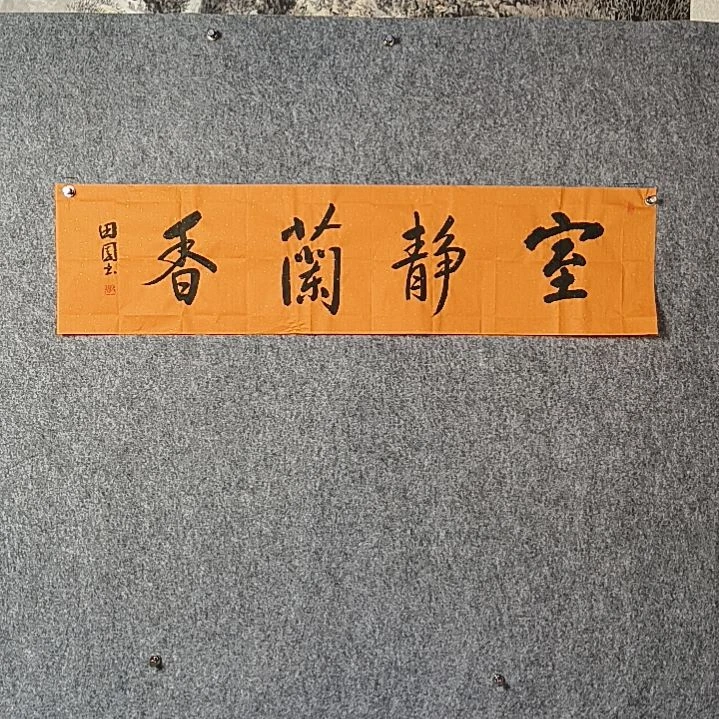 室静蘭香
田園书